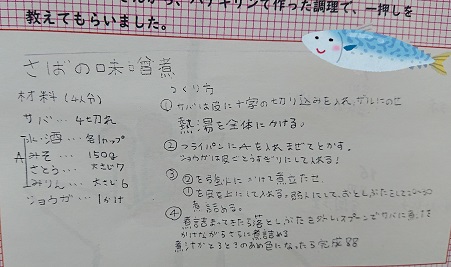 で作った調理で、一押しを
教えてもらいました。
さばの味噌煮
材料(4人分)
サバ… 4切れ
A
水・酒… 各1カップ
みそ… 150g
さとう… 大さじ7
みりん… 大さじ6
ショウガ… 1かけ
つくり方
①サバは皮に十字の切り込みを入れ、ザルにのせ
熱湯を全体にかける。
②フライパンにAを入れまぜてとかす。
ショウガは皮ごとうすぎりにして入れる!
③②を強火にかけて煮立たせ、
①を皮を上にして入れる。弱火にして、おとしぶたをして20〜30
煮詰める。
④煮詰まってきたら落としぶたを外しスプーンでサバに煮汁を
かけながらさらに煮詰める
煮汁がとろとろのあめ色になったら完成